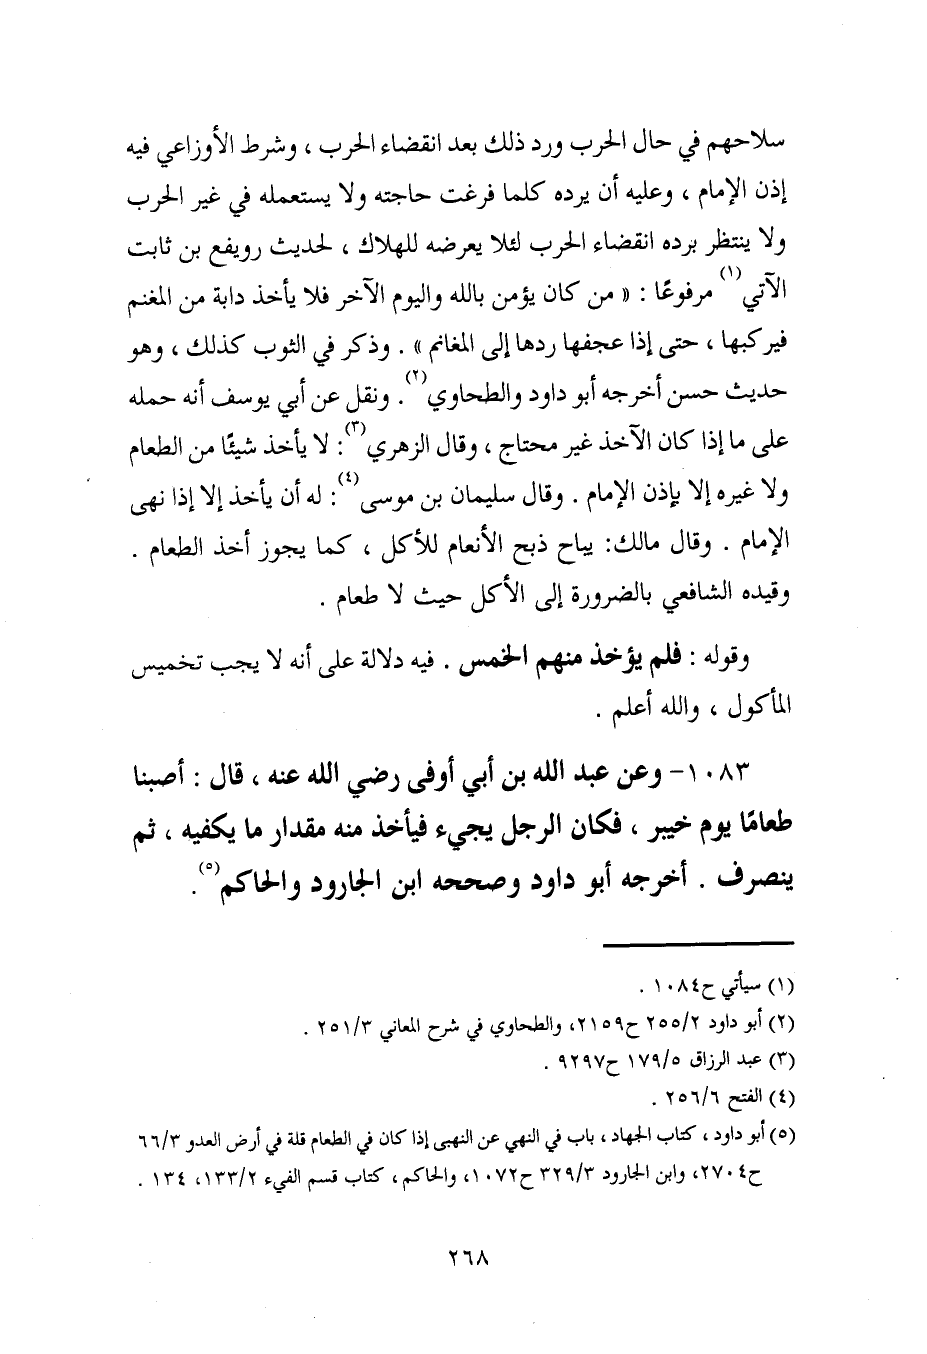 سلاحهم في حال الحرب ورد ذلك بعد انقضاء الحرب ، وشرط الأوزاعي فيه
إذن الإمام ، وعليه أن يرده كلما فرغت حاجته ولا يستعمله في غير الحرب
ولا ينتظر برده انقضاء الحرب لئلا يعرضه للهلاك ، لحديث رويفع بن ثابت
الآتي(١) مرفوعًا : « من كان يؤمن بالله واليوم الآخر فلا يأخذ دابة من المغنم
فيركبها ، حتى إذا عجفها ردها إلى المغانم » . وذكر في الثوب كذلك ، وهو
حديث حسن أخرجه أبو داود والطحاوي(٢). ونقل عن أبي يوسف أنه حمله
على ما إذا كان الآخذ غير محتاج ، وقال الزهري(٣): لا يأخذ شيئًا من الطعام
ولا غيره إلا بإذن الإمام . وقال سليمان بن موسى(٤): له أن يأخذ إلا إذا نهى
الإمام . وقال مالك: يباح ذبح الأنعام للأكل ، كما يجوز أخذ الطعام .
وقيده الشافعي بالضرورة إلى الأكل حيث لا طعام .
وقوله : فلم يؤخذ منهم الخمس . فيه دلالة على أنه لا يجب تخميس
المأكول ، والله أعلم .
١٠٨٣- وعن عبد الله بن أبي أوفى رضي الله عنه ، قال : أصبنا
طعامًا يوم خيبر ، فكان الرجل يجيء فيأخذ منه مقدار ما يكفيه ، ثم
ينصرف . أخرجه أبو داود وصححه ابن الجارود والحاكم(٥).
(١) سيأتي ح١٠٨٤ .
(٢) أبو داود ٢٥٥/٢ ح٢١٥٩، والطحاوي في شرح المعاني ٢٥١/٣ .
(٣) عبد الرزاق ١٧٩/٥ ح٩٢٩٧ .
(٤) الفتح ٢٥٦/٦ .
(٥) أبو داود ، كتاب الجهاد ، باب في النهي عن النهبى إذا كان في الطعام قلة في أرض العدو ٦٦/٣
ح٢٧٠٤، وابن الجارود ٣٢٩/٣ ح١٠٧٢، والحاكم ، كتاب قسم الفيء ١٣٣/٢، ١٣٤ .
٢٦٨